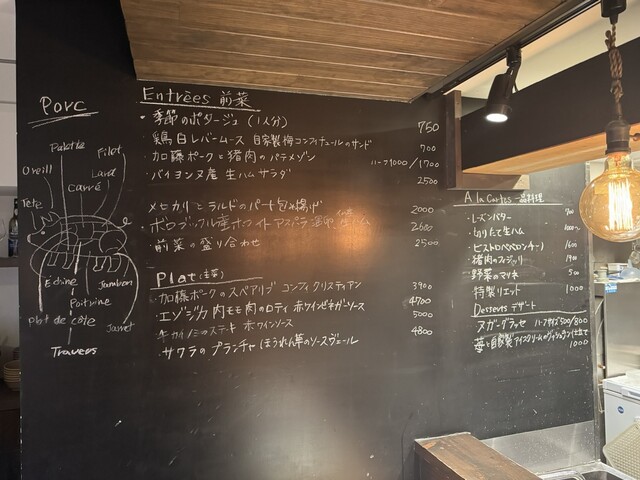 Porc
Palette
Filet
Oreill
Lard
Carré
Tête
Echine
Jambon
Poitrine
Plat de côte
Jarret
Travers
Entrées 前菜
・季節のポタージュ (1人分) 750
・鶏白レバームース 自家製梅コンフィチュールのサンド 700
・加藤ポークと猪肉のパテメゾン ハーフ1000/1700
・バイヨンヌ産 生ハムサラダ 2500
メヒカリとラルドのパート包み揚げ 2000
ホワイトアスパラ 生ハム 2600
・前菜の盛り合わせ 2500
Plat (主菜)
・加藤ポークのスペアリブ コンフィ クリスティアン 3900
・エゾシカ 内モモ肉のロティ 赤ワインビネガーソース 4700
ステーキ 赤ワインソース 5000
・サワラのプランチャ ほうれん草のソースヴェール 4800
A la Cartes 一品料理
・レーズンバター
・切りたて生ハム
・ビストロペペロンチーノ 1600
・猪肉の 1900
・野菜のマリネ 500
・特製リエット 1000
Desserts デザート
・ヌガーグラッセ ハーフサイズ500/800
苺と自家製アイスクリームの 仕立て
1000